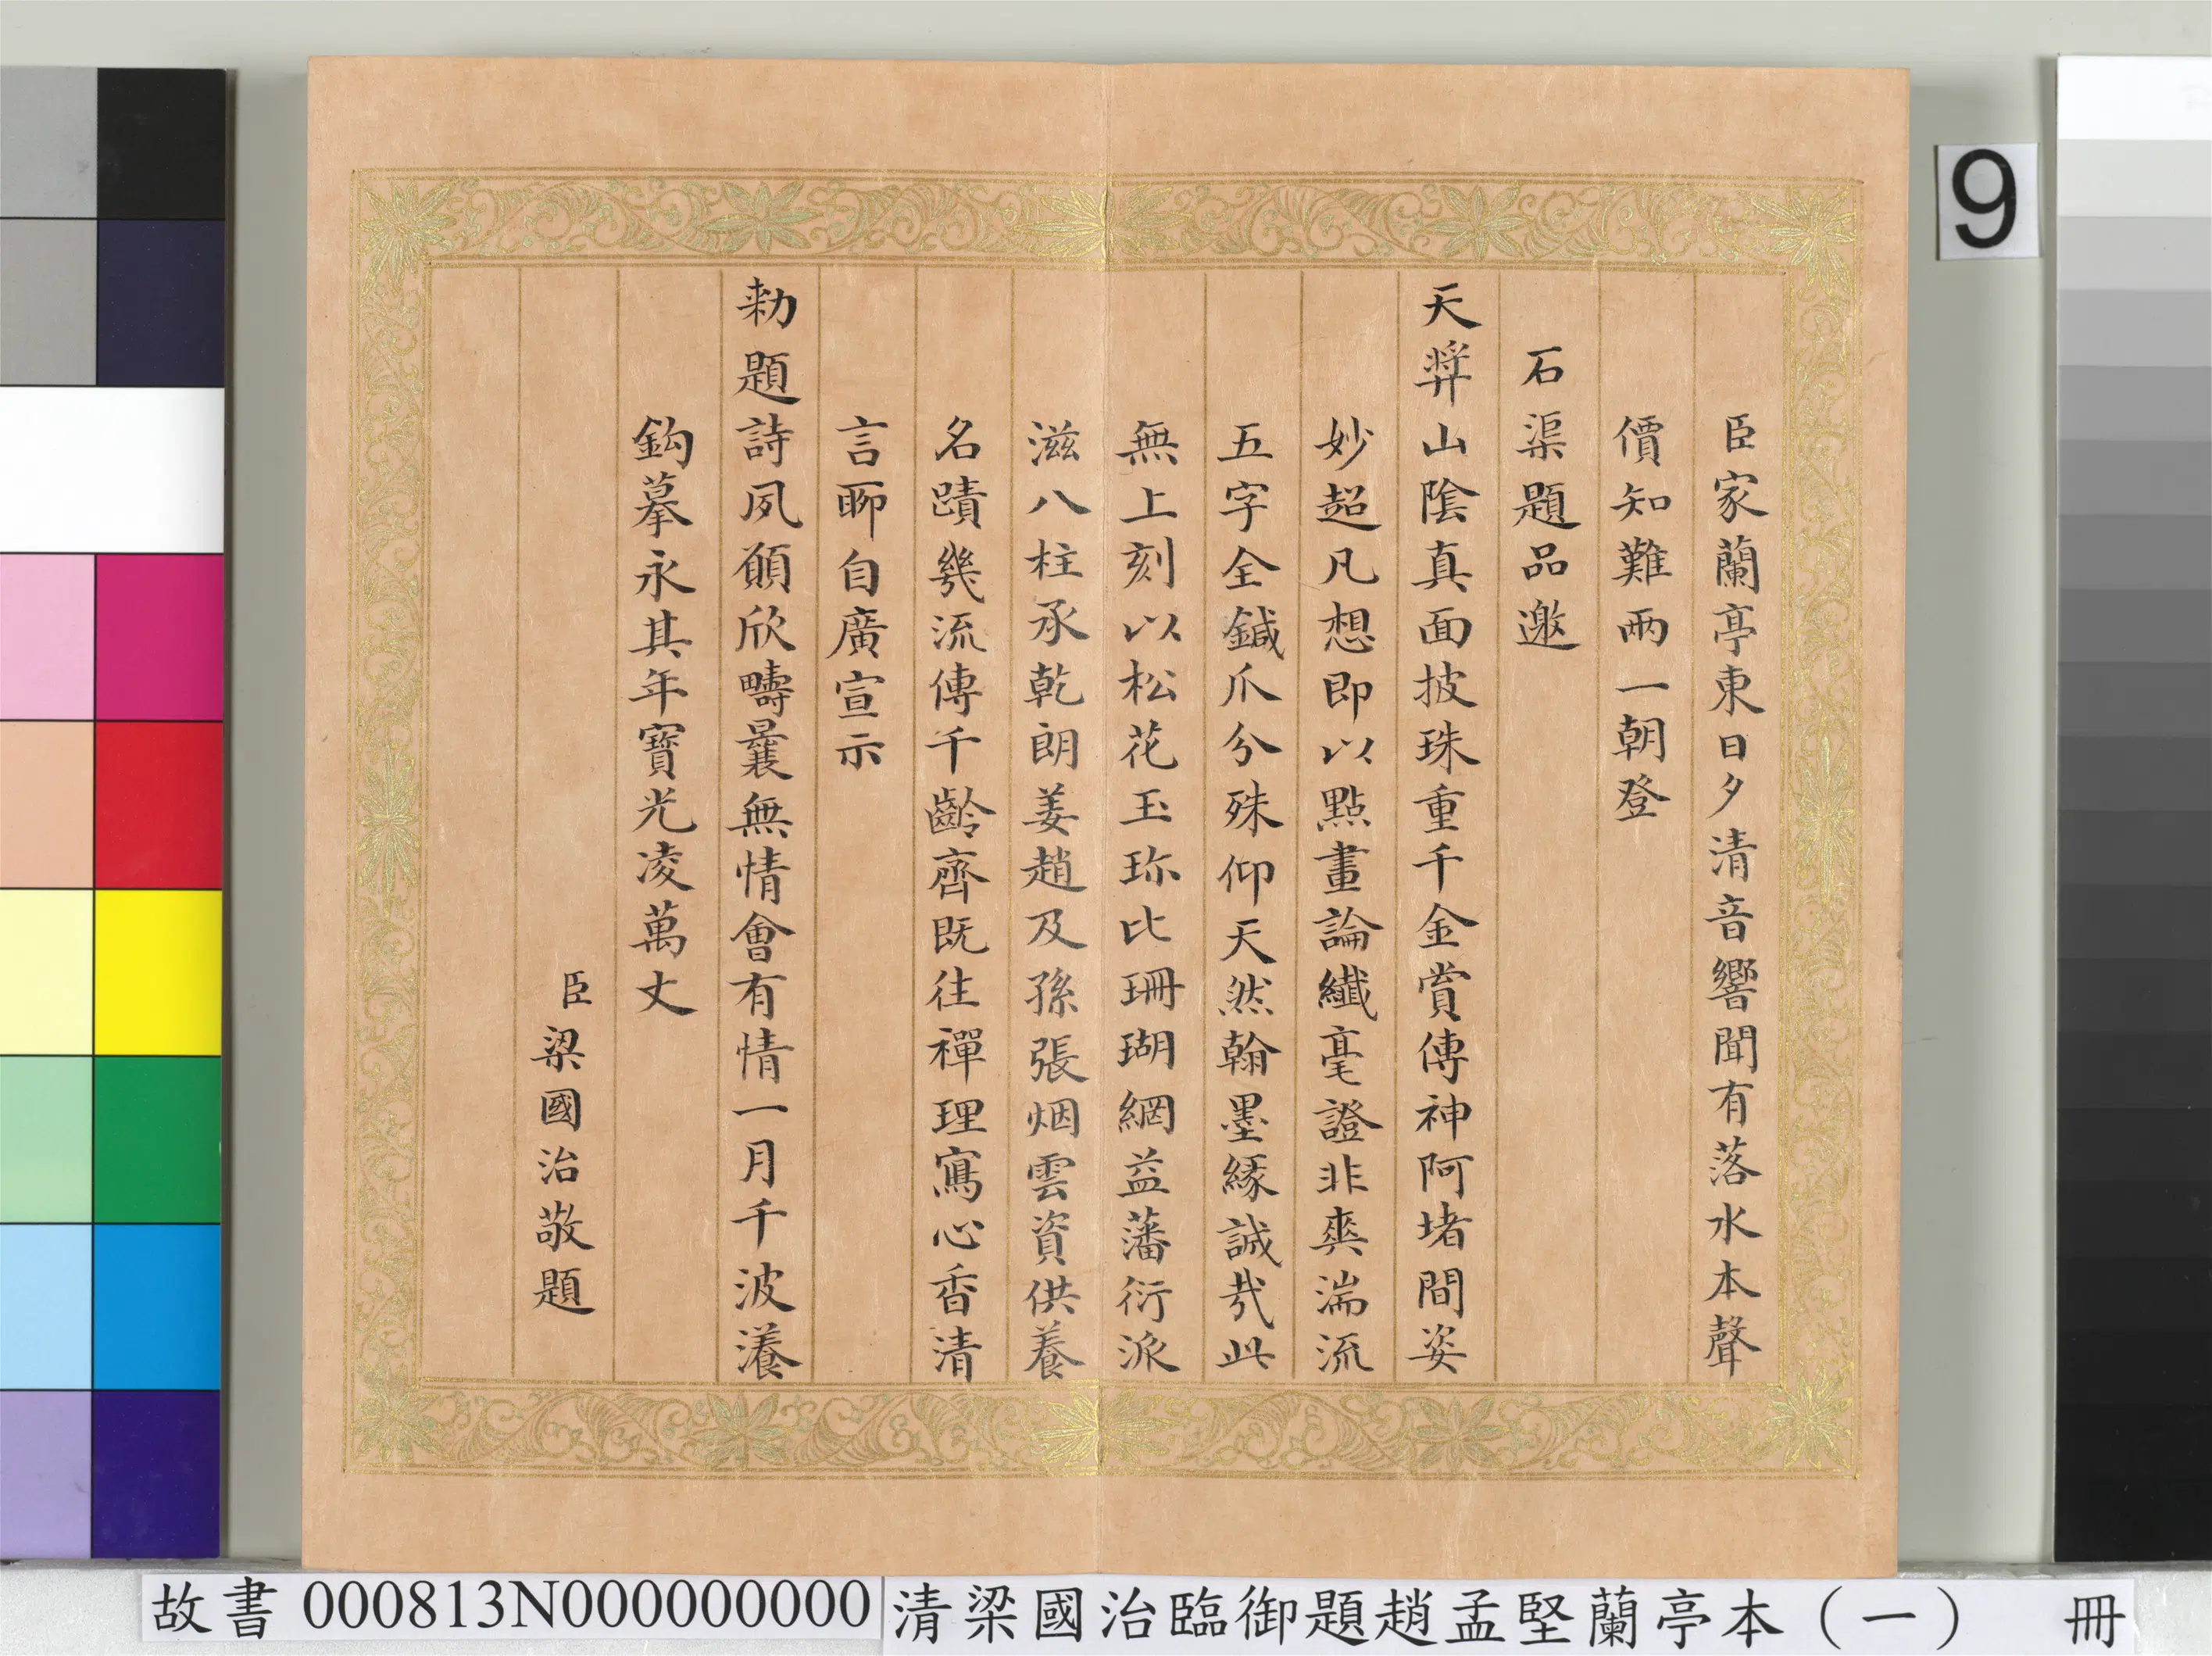 臣家蘭亭東日夕清音響聞有落水本聲
價知難兩一朝登
石渠題品邀
天弉山陰真面披珠重千金賞傳神阿堵間姿
妙超凡想即以點畫論纖毫證非爽湍流
五字全鍼爪分殊仰天然翰墨緣誠哉此
無上刻以松花玉珎比珊瑚網益藩衍派
滋八柱承乾朗姜趙及孫張烟雲資供養
名蹟幾流傳千齡齊既往禪理寫心香清
言聊自廣宣示
勑題詩夙願欣疇曩無情會有情一月千波瀁
鈎摹永其年寶光凌萬丈
臣梁國治敬題
9
故書 000813N000000000 清梁國治臨御題趙孟堅蘭亭本（一） 冊